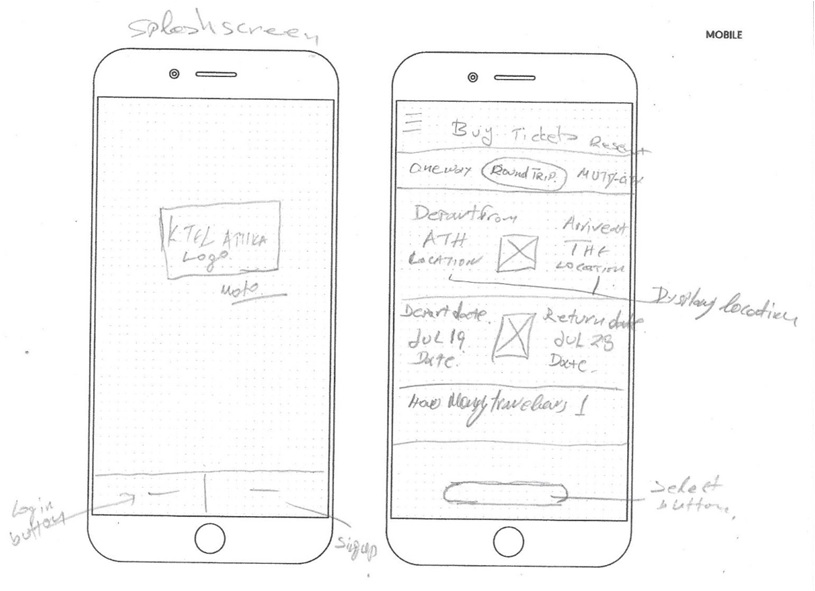 Splashscreen
MOBILE
KTEL ATTIKA
Logo
Moto
Login
button
Signup
Buy Tickets
Reset
One way
Round TRIP.
MULTY-CITY
Depart from
ATH
LOCATION
Arrive at
THE
LOCATION
Display location
Depart date
JUL 19
Date.
Return date
JUL 28
Date.
How Many travelers 1
Select
button.